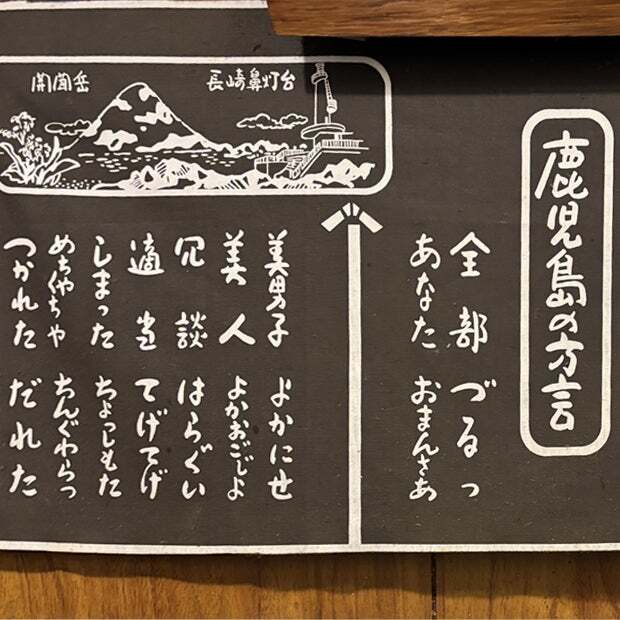 鹿児島の方言
全部 づるっ
あなた おまんさあ
開聞岳
長崎鼻灯台
美男子 よかにせ
美人 よかおごじよ
冗談 はらぐい
適当 てげてげ
しまった ちょっしもた
めちゃくちゃ ちんぐわらっ
つかれた だれた